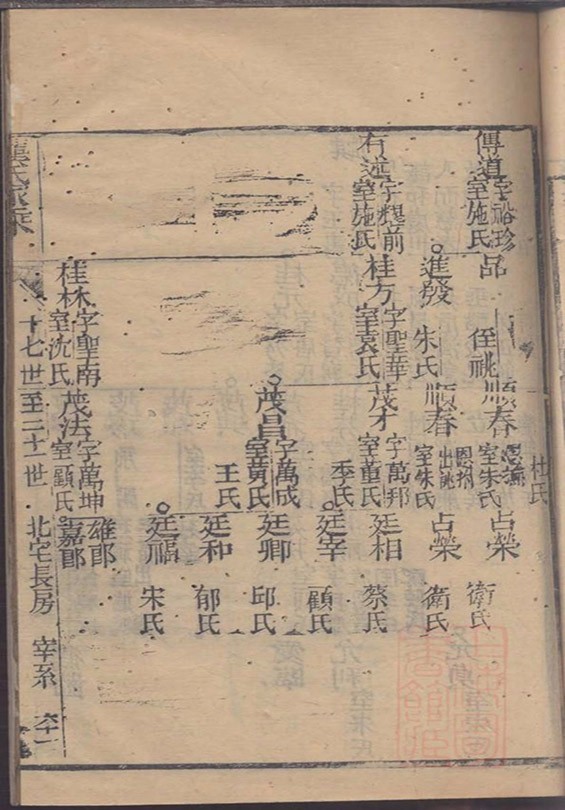 傳道 字裕珍 室施氏 品 侄祧 順春 室朱氏 占榮 衛氏
杜氏
進發 朱氏 順春 恩撫 出祧 室朱氏 占榮 衛氏
有述 字耀前 室施氏 桂方 字聖華 室袁氏 茂才 字萬邦 室董氏 季氏 廷相 蔡氏
廷幸 顧氏
茂昌 字萬成 室黃氏 王氏 廷卿 邱氏
廷和 郁氏
廷福 朱氏
桂林 字聖南 室沈氏 茂法 字萬坤 室顧氏 雄郎 嘉郎
龔氏家乘 十七世至二十一世 北宅長房 宰系